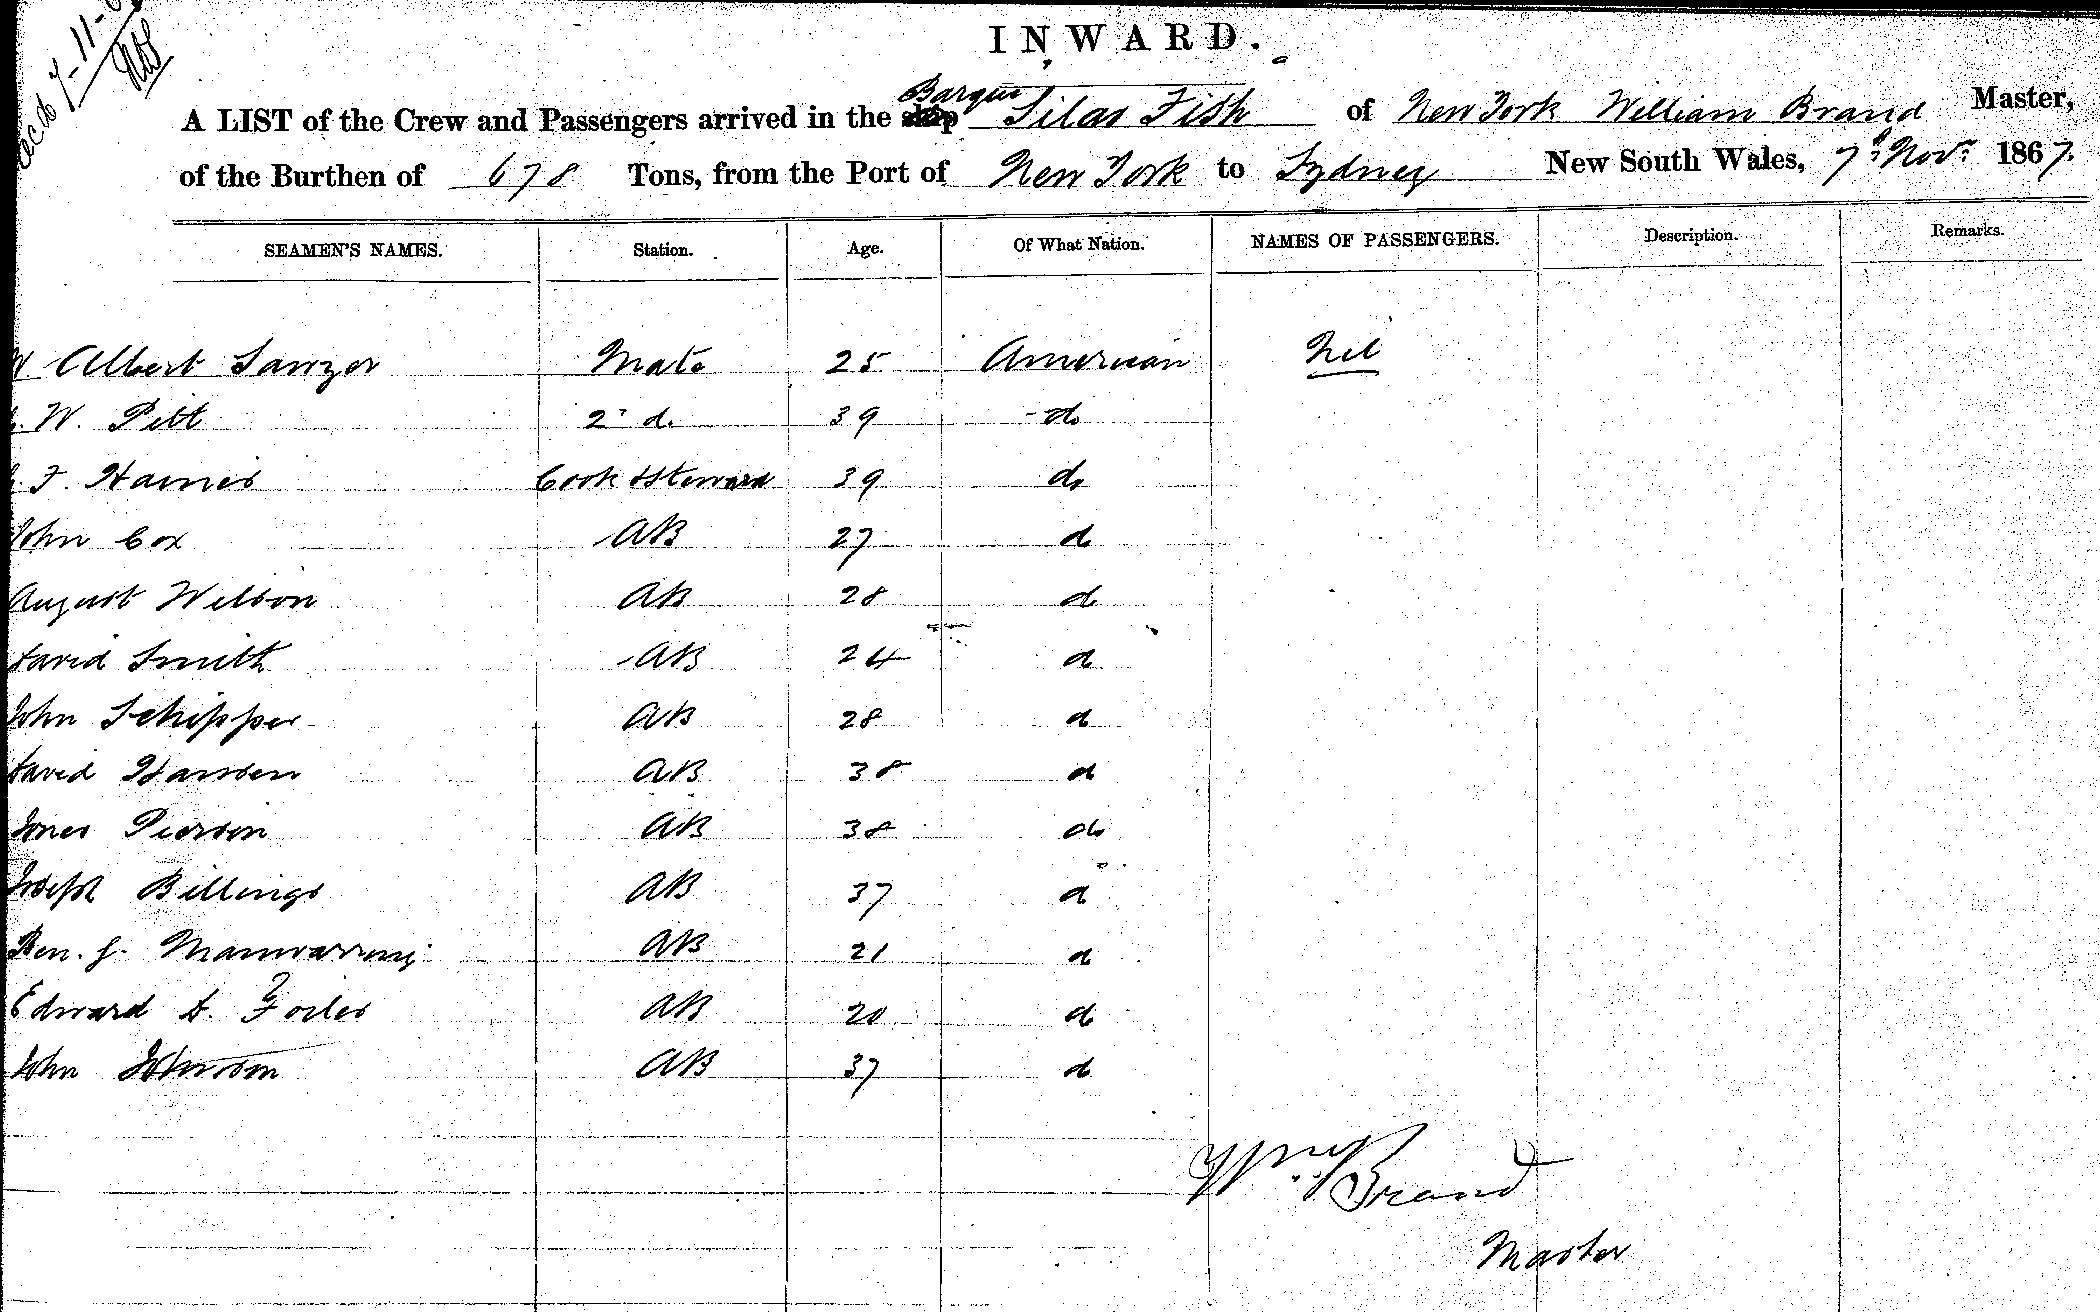 7-11-
INWARD.
A LIST of the Crew and Passengers arrived in the ship Barque Silas Fish of New York William Brand Master,
of the Burthen of 678 Tons, from the Port of New York to Sydney New South Wales, 7th Novr 1867.
SEAMEN'S NAMES. Station. Age. Of What Nation. NAMES OF PASSENGERS. Description. Remarks.
W Albert Sawyer Mate 25 American Nil
W. Pitt 2d do 39 do
F. Harris Cook & Steward 39 do
John Cox AB 27 do
August Wilson AB 28 do
David Smith AB 24 do
John Schipper AB 28 do
David Hansen AB 38 do
Jones Pierson AB 38 do
Joseph Billings AB 37 do
Ben. J. Mainwarring AB 21 do
Edward A. AB 20 do
John Johnson AB 37 do
Wm Brand
Master